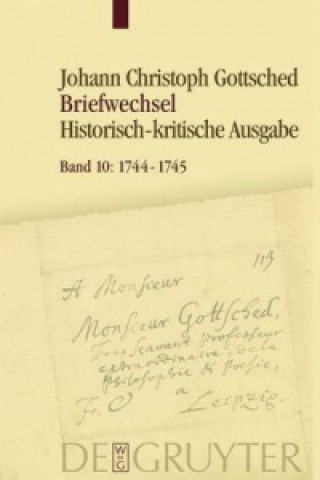 Johann Christoph Gottsched
Briefwechsel
Historisch-kritische Ausgabe
Band 10: 1744-1745
113
A Monsieur
Monsieur Gottsched,
Tres Savant Professeur
extraordinaire, de la
Philosophie & Poesie,
Fr. à
Leipzig.
W
DE G
DE GRUYTER